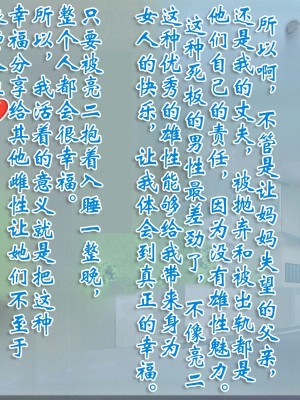 所以啊，不管是让妈妈失望的父亲，
还是我的丈夫，被抛弃和被出轨都是
他们自己的责任，因为没有雄性魅力。
这种死板的男性最差劲了，不像亮二
这种优秀的雄性能够给我带来身为
女人的快乐，让我体会到真正的幸福。
只要被亮二抱着入睡一整晚，
整个人都会很幸福。
所以，我活着的意义就是把这种
幸福分享给其他雌性让她们不至于